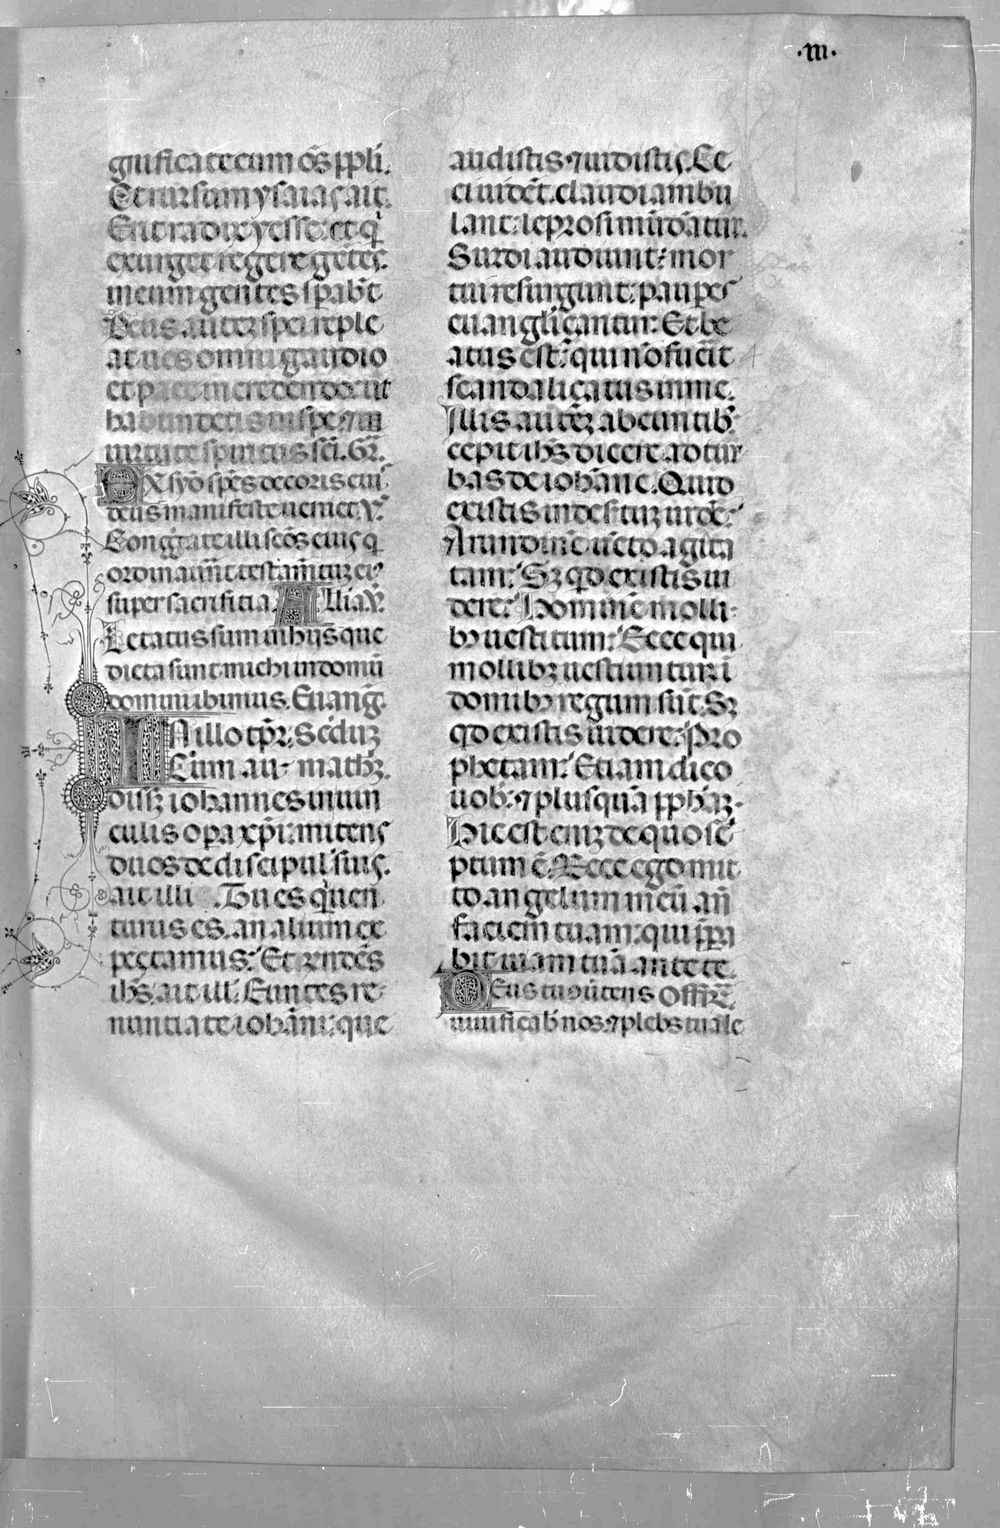 ·III·
gnificate eum oēs ppli.
Et rursum ysaias ait.
Erit radix yesse: et q̇
exurget regere gētes.
in eum gentes spabt̄
Deus autez spei reple
at uos omni gaudio
et pace in credendo: ut
habundetis in spe ⁊ in
uirtute spiritus scī. Gr̄.
EX syō spēs decoris eiꝰ
deus manifeste ueniet. V̄.
Congr̄ate illi scōs eius q
ordinauer̄t testam̄tuz eiꝰ
super sacrificia. Allīa. V̄.
Letatus sum in hijs que
dicta sunt michi in domū
domini ibimus. Euang.
IN illo tp̄r. Scd̄uz
Cum au- math̄z.
dissz iohannes in uin
culis opa xp̄i: mitens
duos de discipul' suis.
ait illi. Tu es q̇ uen
turus es. an alium ex
pectamus: Et r̄ndēs
ihs̄. ait ill'. Euntes re
nuntiate iohāni: que
audistis ⁊ uidistis. Ce
ci uidēt. claudi ambu
lant: leprosi mūdātur.
Surdi audiunt: mor
tui resurgunt: paupes
euanglicantur: Et be
atus est: qui nō fuerit
scandaliçatus in me.
Illis autēz abeuntibꝰ.
cepit ihs̄ dicere ad tur
bas de iohāne. Quid
existis in desertuz uidēr:
Arundinē uēto agita
tam: Sz qd existis ui
dere: Hominē molli
bꝫ uestitum: Ecce qui
mollibz uestiuntur ī
domibꝫ regum sūt. Sz
qd existis uidere: Pro
phetam: Etiam dico
uob. ⁊ plusquā pph̄az.
Hic est eniz de quo sc̄
ptum ē. Ecce ego mit
to angelum meū an̄
faciem tuam: qui ppa
bit uiam tuā ante te.
DEus tu ↄuertens Offr̄e
uiuificab' nos ⁊ plebs tua le